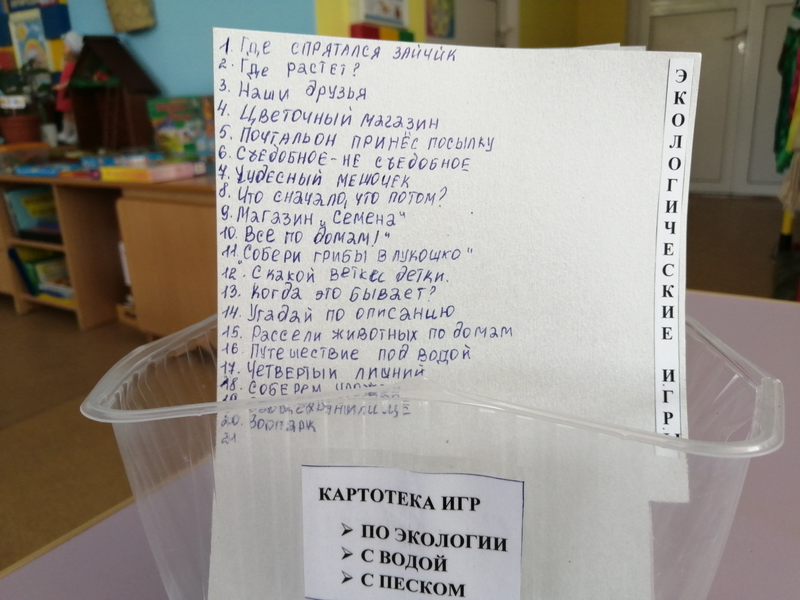 1. Где спрятался зайчик
2. Где растет?
3. Наши друзья
4. Цветочный магазин
5. Почтальон принёс посылку
6. Съедобное-не съедобное
7. Чудесный мешочек
8. Что сначало, что потом?
9. Магазин „Семена"
10. Все по домам!"
11. Собери грибы в лукошко"
12. С какой ветки детки.
13. Когда это бывает?
14. Угадай по описанию
15. Рассели животных по домам
16. Путешествие под водой
17. Четвертый лишний
18. Соберем
19.
20. Зоопарк
21
ЭКОЛОГИЧЕСКИЕ ИГРЫ
КАРТОТЕКА ИГР
➢ ПО ЭКОЛОГИИ
➢ С ВОДОЙ
➢ С ПЕСКОМ